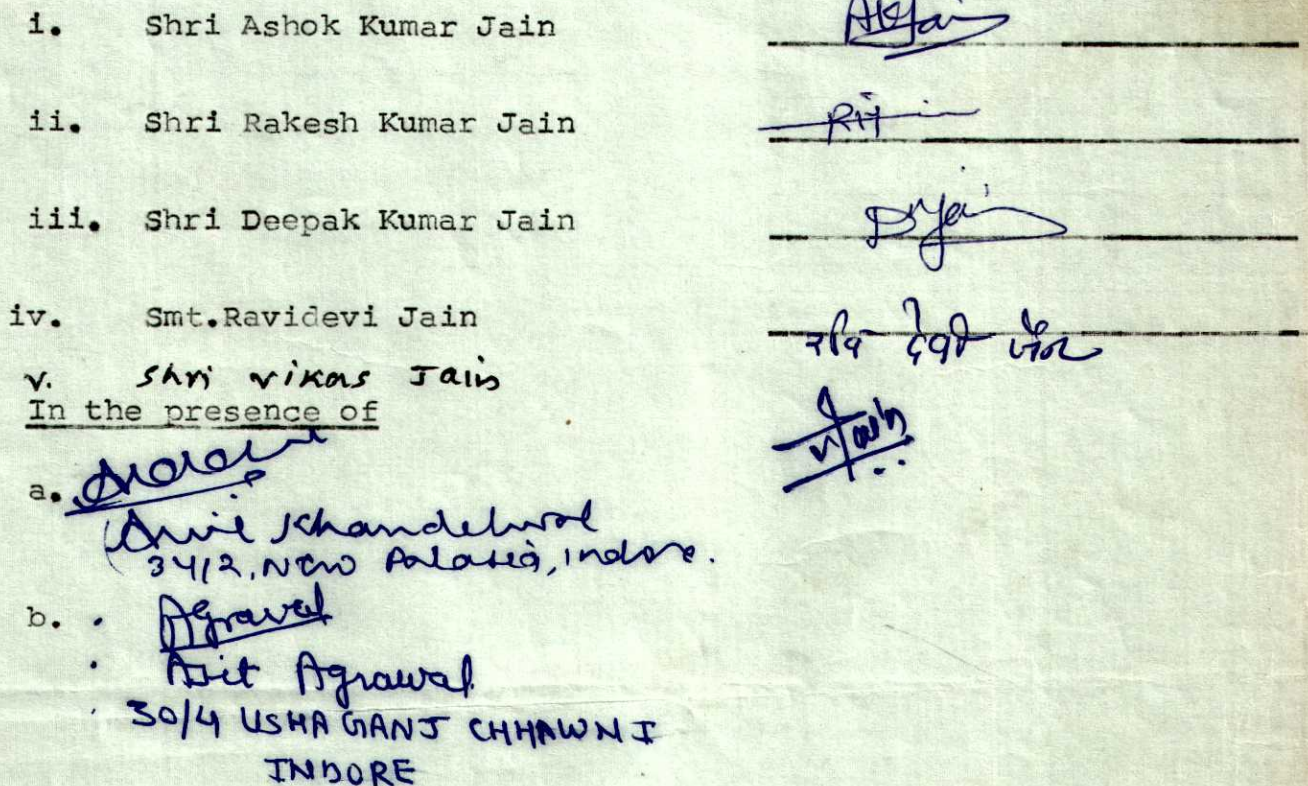 i. Shri Ashok Kumar Jain AKJain
ii. Shri Rakesh Kumar Jain
iii. Shri Deepak Kumar Jain DKJain
iv. Smt.Ravidevi Jain रवि देवी जैन
v. Shri vikas Jain
In the presence of VJain
a.
Anil Khandelwal
34/2, New Palasia, Indore.
b. Agrawal
Asit Agrawal
30/4 USHA GANJ CHHAWNI
INDORE